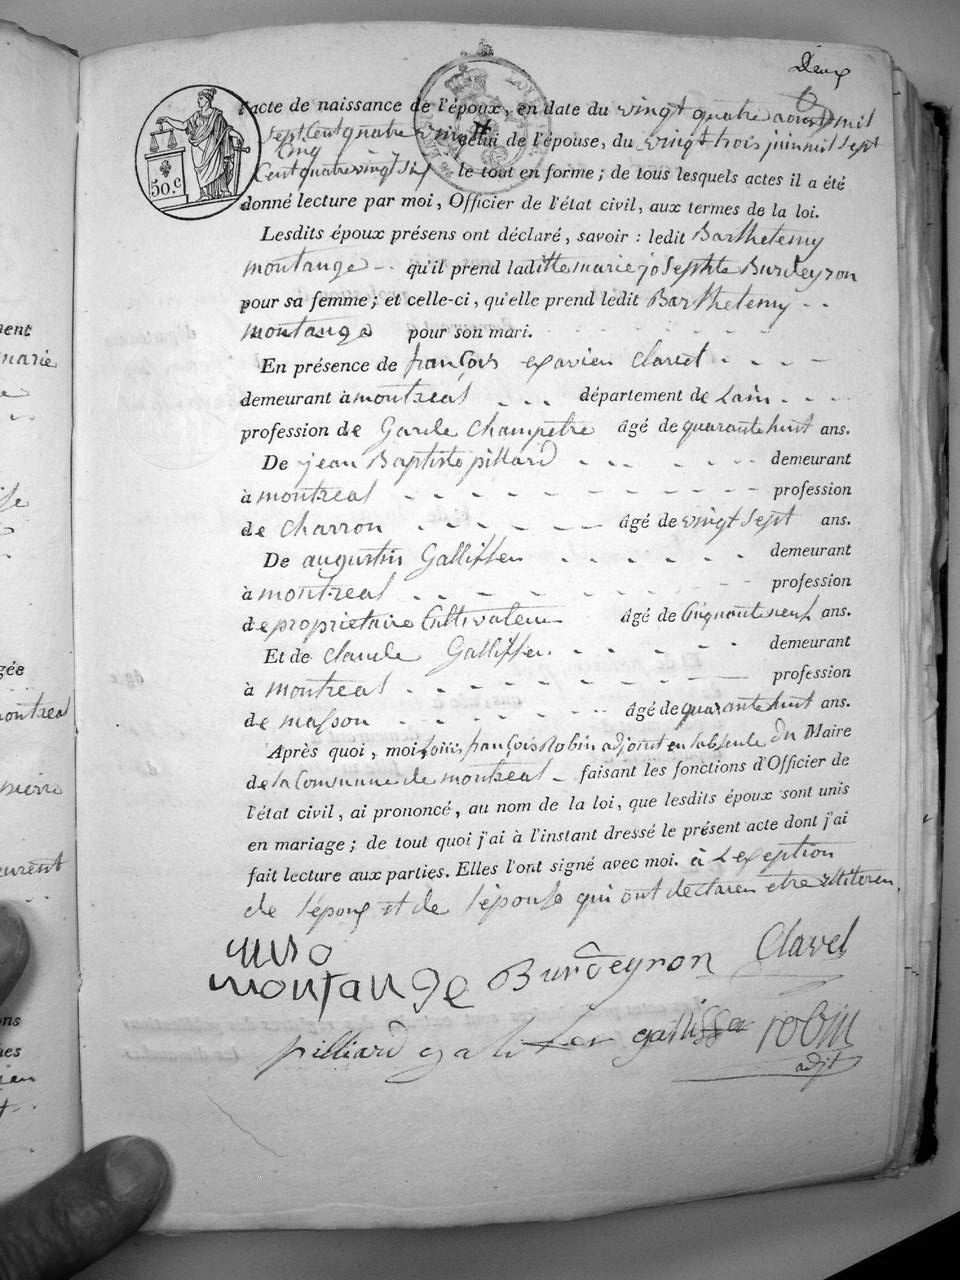 Deux
l'acte de naissance de l'époux, en date du vingt quatre aoust mil
sept Cent quatre vingt celui de l'épouse, du vingt trois juin mil sept
Cinq
Cent quatre vingt Six le tout en forme; de tous lesquels actes il a été
50.c
donné lecture par moi, Officier de l'état civil, aux termes de la loi.
Lesdits époux présens ont déclaré, savoir : ledit Barthelemy
montange - - qu'il prend laditte marie josephte Burdeyron
pour sa femme; et celle-ci, qu'elle prend ledit Barthelemy - -
montange pour son mari.
En présence de françois exavier Clavel - - - -
demeurant à montreal - - - département de Lain - - - -
profession de Garde Champetre âgé de quarante huit ans.
De jean Baptiste pillard - - - - - - - demeurant
à montreal - - - - - - - - - - - - profession
de Charron - - - - - - - âgé de vingt sept ans.
De augustin Galliffer - - - - - - demeurant
à montreal - - - - - - - - - - - profession
de propriétaire Cultivateur âgé de Cinquante neuf ans.
Et de claude Galliffer - - - - - - demeurant
à montreal - - - - - - - - - - profession
de masson - - - - - - - âgé de quarante huit ans.
Après quoi, moi, Louis françois Robin adjoint en labsence du Maire
de la Commune de montreal - faisant les fonctions d'Officier de
l'état civil, ai prononcé, au nom de la loi, que lesdits époux sont unis
en mariage; de tout quoi j'ai à l'instant dressé le présent acte dont j'ai
fait lecture aux parties. Elles l'ont signé avec moi. à Lexeption
de l'époux et de l'épouse qui ont declaren etre illiteren
montange Burdeyron Clavel
pilliard galifer galliffer robin
adjt
ment
marie
gée
montreal
pierre
eurent
ons